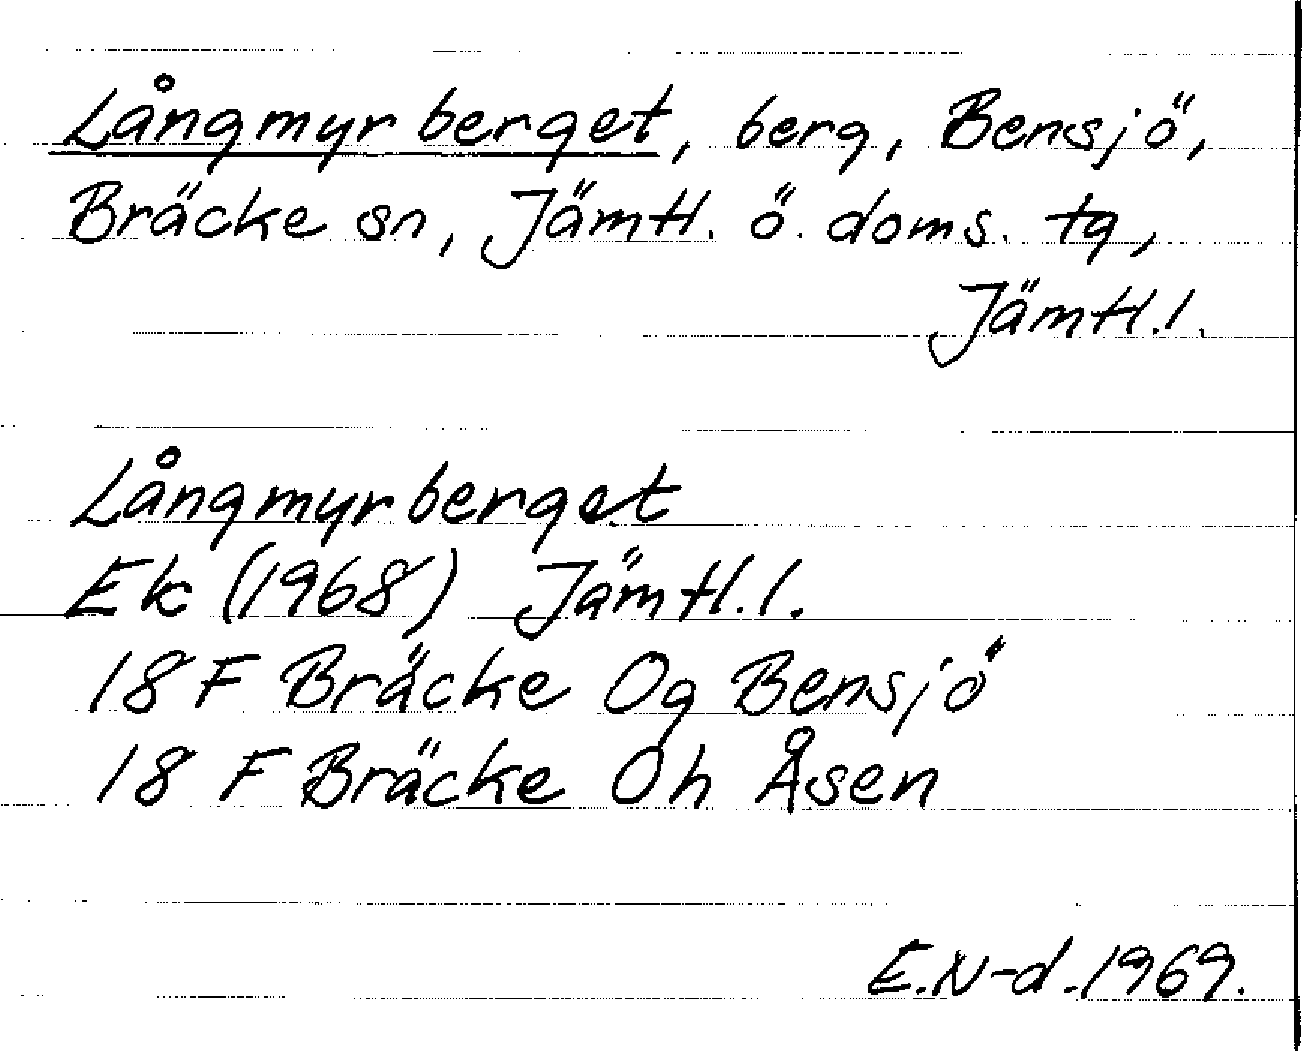 Långmyrberget, berg, Bensjö,
Bräcke sn, Jämtl. ö. doms. tg,
Jämtl.l.
Långmyrberget
Ek (1968) Jämtl.l.
18 F Bräcke Og Bensjö
18 F Bräcke Oh Åsen
E.N-d.1969.